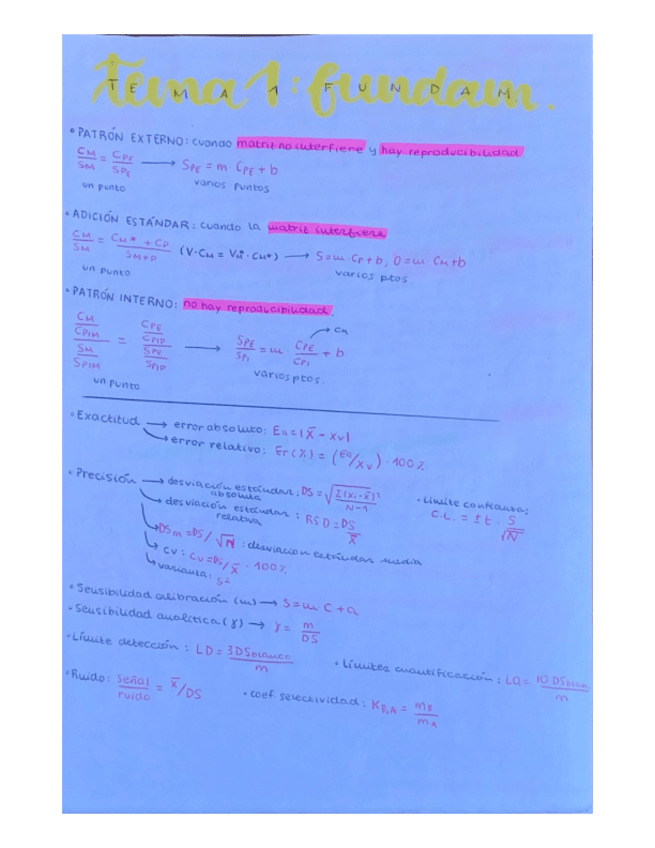 tema 1: fundam.
TEMA 1 FUNDAM
• PATRÓN EXTERNO: cuando matriz no interfiere y hay reproducibilidad.
CM/SM = CPE/SPE ⟶ SPE = m CPE + b
un punto varios puntos
• ADICIÓN ESTÁNDAR: cuando la matriz interfiere
CM/SM = (CM* + CP)/SM+P (V·CM = VM*·CM*) ⟶ S=m·CP+b, 0=m·CM+b
un punto varios ptos
• PATRÓN INTERNO: no hay reproducibilidad.
(CM/CPIM)/(SM/SPIM) = (CPE/CPIP)/(SPE/SPIP) ⟶ SPE/SPI = m · CPE/CPI + b → CM
un punto varios ptos.
• Exactitud ⟶ error absoluto: Ea = |X̄ - XV|
↘ error relativo: Er (%) = (Ea/XV) · 100%
• Precisión ⟶ desviación estándar absoluta: DS = √(Σ(Xi - X̄)²/N-1)
• Límite confianza: C.L. = ± t · S/√N
↘ desviación estándar relativa: RSD = DS/X̄
↘ DSm = DS/√N : desviación estándar media
↘ CV: CV = DS/X̄ · 100%
↘ varianza: S²
• Sensibilidad calibración (m) ⟶ S = m C + a
• Sensibilidad analítica (γ) ⟶ γ = m/DS
• Límite detección: LD = 3DSblanco/m
• Límites cuantificación: LQ = 10 DSblan/m
• Ruido: señal/ruido = X̄/DS
• coef. selectividad: KB,A = mB/mA